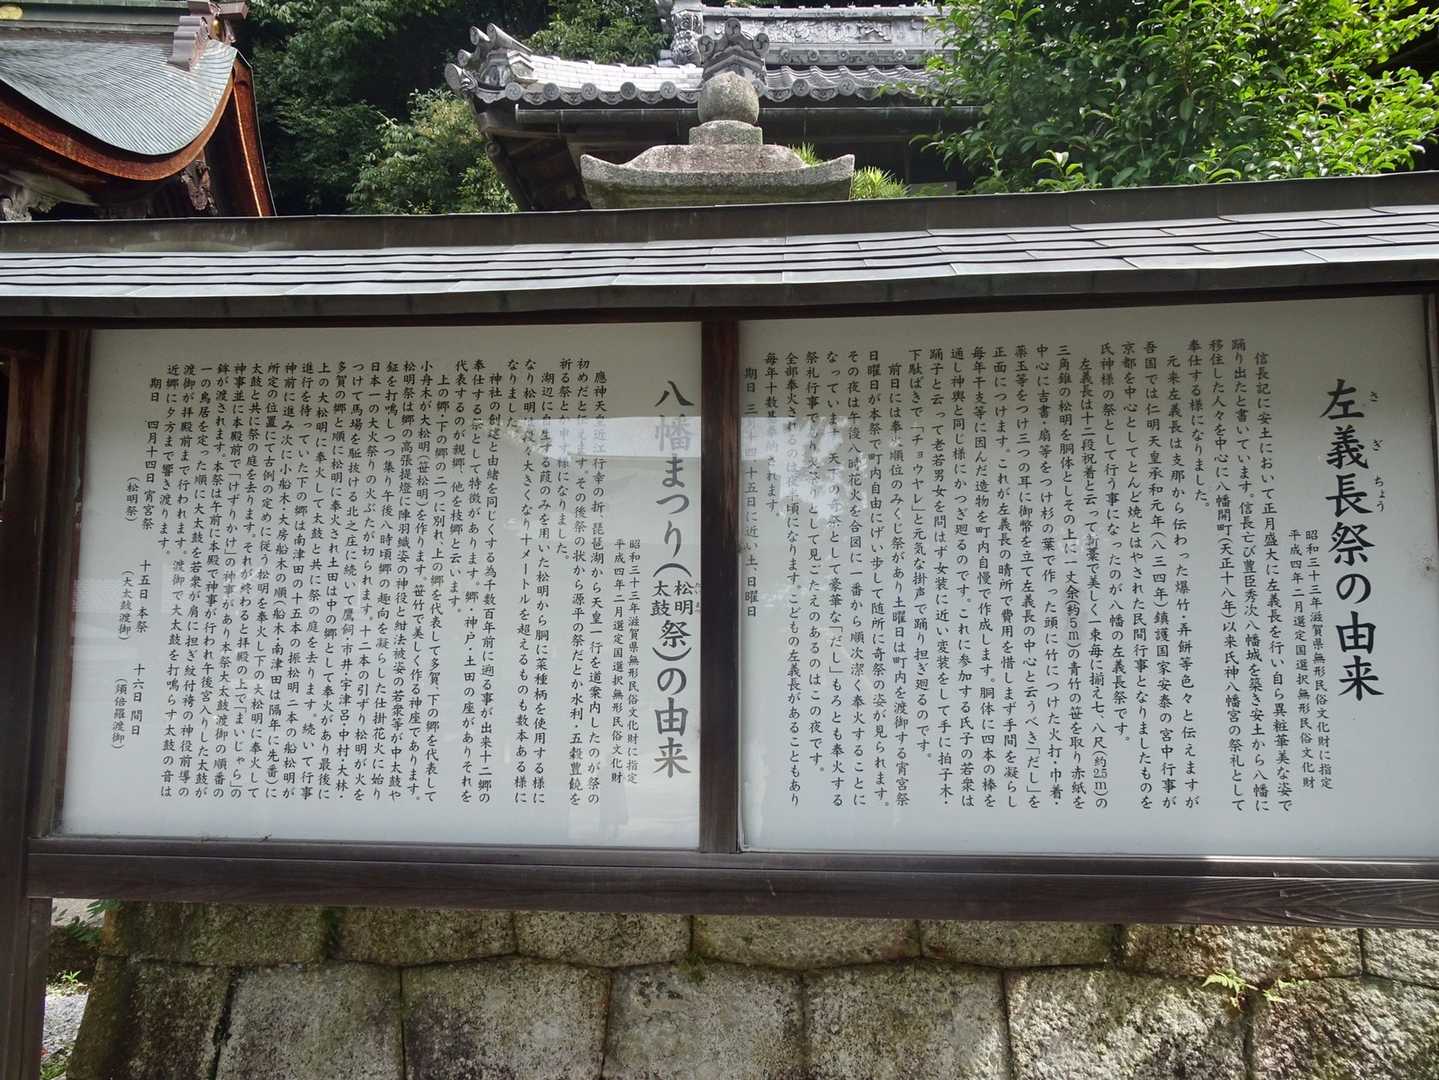 左義長祭の由来
さぎちょう
昭和三十三年滋賀県無形民俗文化財に指定
平成四年二月選定国選択無形民俗文化財
信長記に安土において正月盛大に左義長を行い自ら異粧華美な姿で
踊り出たと書いています。信長亡び豊臣秀次八幡城を築き安土から八幡に
移住した人々を中心に八幡開町(天正十八年)以来氏神八幡宮の祭礼として
奉仕する様になりました。
元来左義長は支那から伝わった爆竹・弄餅等色々と伝えますが
吾国では仁明天皇承和元年(八三四年)鎮護国家安泰の宮中行事が
京都を中心としてとんど焼とはやされた民間行事となりましたものを
氏神様の祭として行う事になったのが八幡の左義長祭です。
左義長は十二段祝着と云って新藁で美しく一束毎に揃え七、八尺(約2.5m)の
三角錐の松明を胴体としその上に一丈余(約5m)の青竹の笹を取り赤紙を
中心に吉書・扇等をつけ杉の葉で作った頭に竹につけた火打・巾着・
薬玉等をつけ三つの耳に御幣を立て左義長の中心と云うべき「だし」を
正面につけます。これが左義長の晴所で費用を惜しまず手間を凝らし
毎年干支等に因んだ造物を町内自慢で作成します。胴体に四本の棒を
通し神輿と同じ様にかつぎ廻るのです。これに参加する氏子の若衆は
踊子と云って老若男女を問はず女装に近い変装をして手に拍子木・
下駄ばきで「チョウヤレ」と元気な掛声で踊り担ぎ廻るのです。
前日には奉火順位のみくじ祭があり土曜日は町内を渡御する宵宮祭
日曜日が本祭で町内自由にげい歩して随所に奇祭の姿が見られます。
その夜は午後八時花火を合図に一番から順次潔く奉火することに
なっています。天下の奇祭として豪華な「だし」もろとも奉火する
祭礼行事でかり火祭りとして見ごたえのあるのはこの夜です。
全部奉火されるのは夜十頃になります。こどもの左義長があることもあり
毎年十数基奉納されます。
期日 三月十四・十五日に近い土、日曜日
八幡まつり(松明太鼓祭)の由来
昭和三十三年滋賀県無形民俗文化財に指定
平成四年二月選定国選択無形民俗文化財
應神天皇近江行幸の折、琵琶湖から天皇一行を道案内したのが祭の
初めだと伝えます。その後祭の状から源平の祭だとか水利・五穀豊饒を
祈る祭とか申す様になりました。
湖辺に自生する葭のみを用いた松明から胴に菜種柄を使用する様に
なり松明は段々大きくなり十メートルを超えるものも数本ある様に
なりました。
神社の創建と由緒を同じくする為千数百年前に遡る事が出来十二郷の
奉仕する祭として特徴があります。郷・神戸・土田の座がありそれを
代表するのが親郷、他を枝郷と云います。
上の郷・下の郷の二つに別れ、上の郷を代表して多賀、下の郷を代表して
小舟木が大松明(笹松明)を作ります。笹竹で美しく作る神座であります。
松明祭は郷の高張提燈に陣羽織姿の神役と紺法被姿の若衆等が中太鼓や
鉦を打鳴しつつ集り午後八時頃郷の趣向を凝らした仕掛花火に始り
日本一の大火祭りの火ぶたが切られます。十二本の引ずり松明が火を
つけて馬場を駈抜ける北之庄に続いて鷹飼・市井・宇津呂・中村・大林・
多賀の郷と順に松明に奉火され土田は中の郷として奉火があり最後に
上の大松明に奉火して太鼓と共に祭の庭を去ります。続いて行事
進行を待っていた下の郷は南津田の十五本の振松明、二本の船松明が
神前に進み次に小船木・大房船木の順(船木・南津田は隔年に先番)に
所定の位置にて古例の定めに従り松明を奉火し下の大松明に奉火して
太鼓と共に祭の庭を去ります。それが終わると拝殿の上で「まいじゃら」の
神事並に本殿前で「けずりかけ」の神事があり本祭大太鼓渡御の順番の
鉾が渡されます。本祭は午前に本殿で神事が行われ午後宮入りした太鼓が
一の鳥居を定った順に大太鼓を若衆が肩に担ぎ紋付袴の神役前導の
渡御が拝殿前まで行われます。渡御で大太鼓を打鳴らす太鼓の音は
近郷に夕方まで響き渡ります。
期日 四月十四日 宵宮祭 十五日 本祭 十六日 間日
(松明祭) (大太鼓渡御) (須倍羅渡御)